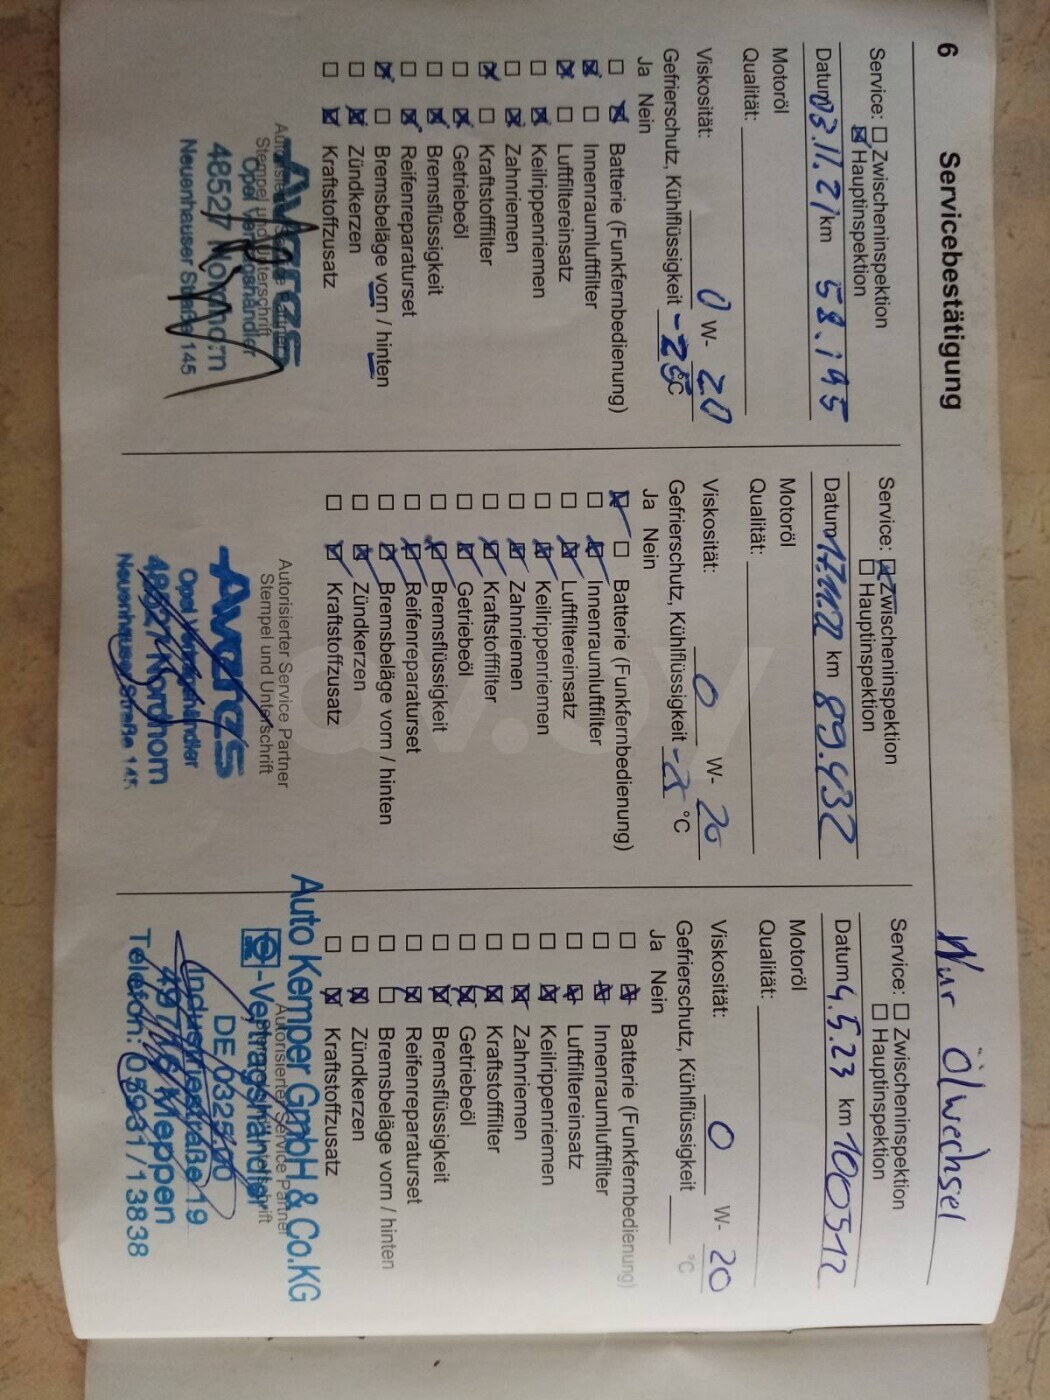 6 Servicebestätigung
Nur Ölwechsel
Service: Zwischeninspektion
Hauptinspektion
Datum 03.11.21 km 58.195
Motoröl
Qualität:
Viskosität: 0 W- 20
Gefrierschutz, Kühlflüssigkeit -25 °C
Ja Nein
Batterie (Funkfernbedienung)
Innenraumluftfilter
Luftfiltereinsatz
Keilrippenriemen
Zahnriemen
Kraftstofffilter
Getriebeöl
Bremsflüssigkeit
Reifenreparaturset
Bremsbeläge vorn / hinten
Zündkerzen
Kraftstoffzusatz
Stempel und Unterschrift
Opel Vertragshändler
48527 Nordhorn
Neuenhauser Straße 145
Service: Zwischeninspektion
Hauptinspektion
Datum km 89.432
Motoröl
Qualität:
Viskosität: 0 W- 20
Gefrierschutz, Kühlflüssigkeit °C
Ja Nein
Batterie (Funkfernbedienung)
Innenraumluftfilter
Luftfiltereinsatz
Keilrippenriemen
Zahnriemen
Kraftstofffilter
Getriebeöl
Bremsflüssigkeit
Reifenreparaturset
Bremsbeläge vorn / hinten
Zündkerzen
Kraftstoffzusatz
Autorisierter Service Partner
Stempel und Unterschrift
Opel Vertragshändler
48527 Nordhorn
Neuenhauser Straße 145
Service: Zwischeninspektion
Hauptinspektion
Datum 4.5.23 km 100512
Motoröl
Qualität:
Viskosität: 0 W- 20
Gefrierschutz, Kühlflüssigkeit °C
Ja Nein
Batterie (Funkfernbedienung)
Innenraumluftfilter
Luftfiltereinsatz
Keilrippenriemen
Zahnriemen
Kraftstofffilter
Getriebeöl
Bremsflüssigkeit
Reifenreparaturset
Bremsbeläge vorn / hinten
Zündkerzen
Kraftstoffzusatz
Auto Kemper GmbH & Co.KG
Autorisierter Service Partner
-Vertragshändler
DE 0325
Industriestraße 19
49716 Meppen
Telefon: 05931/13838
av.by